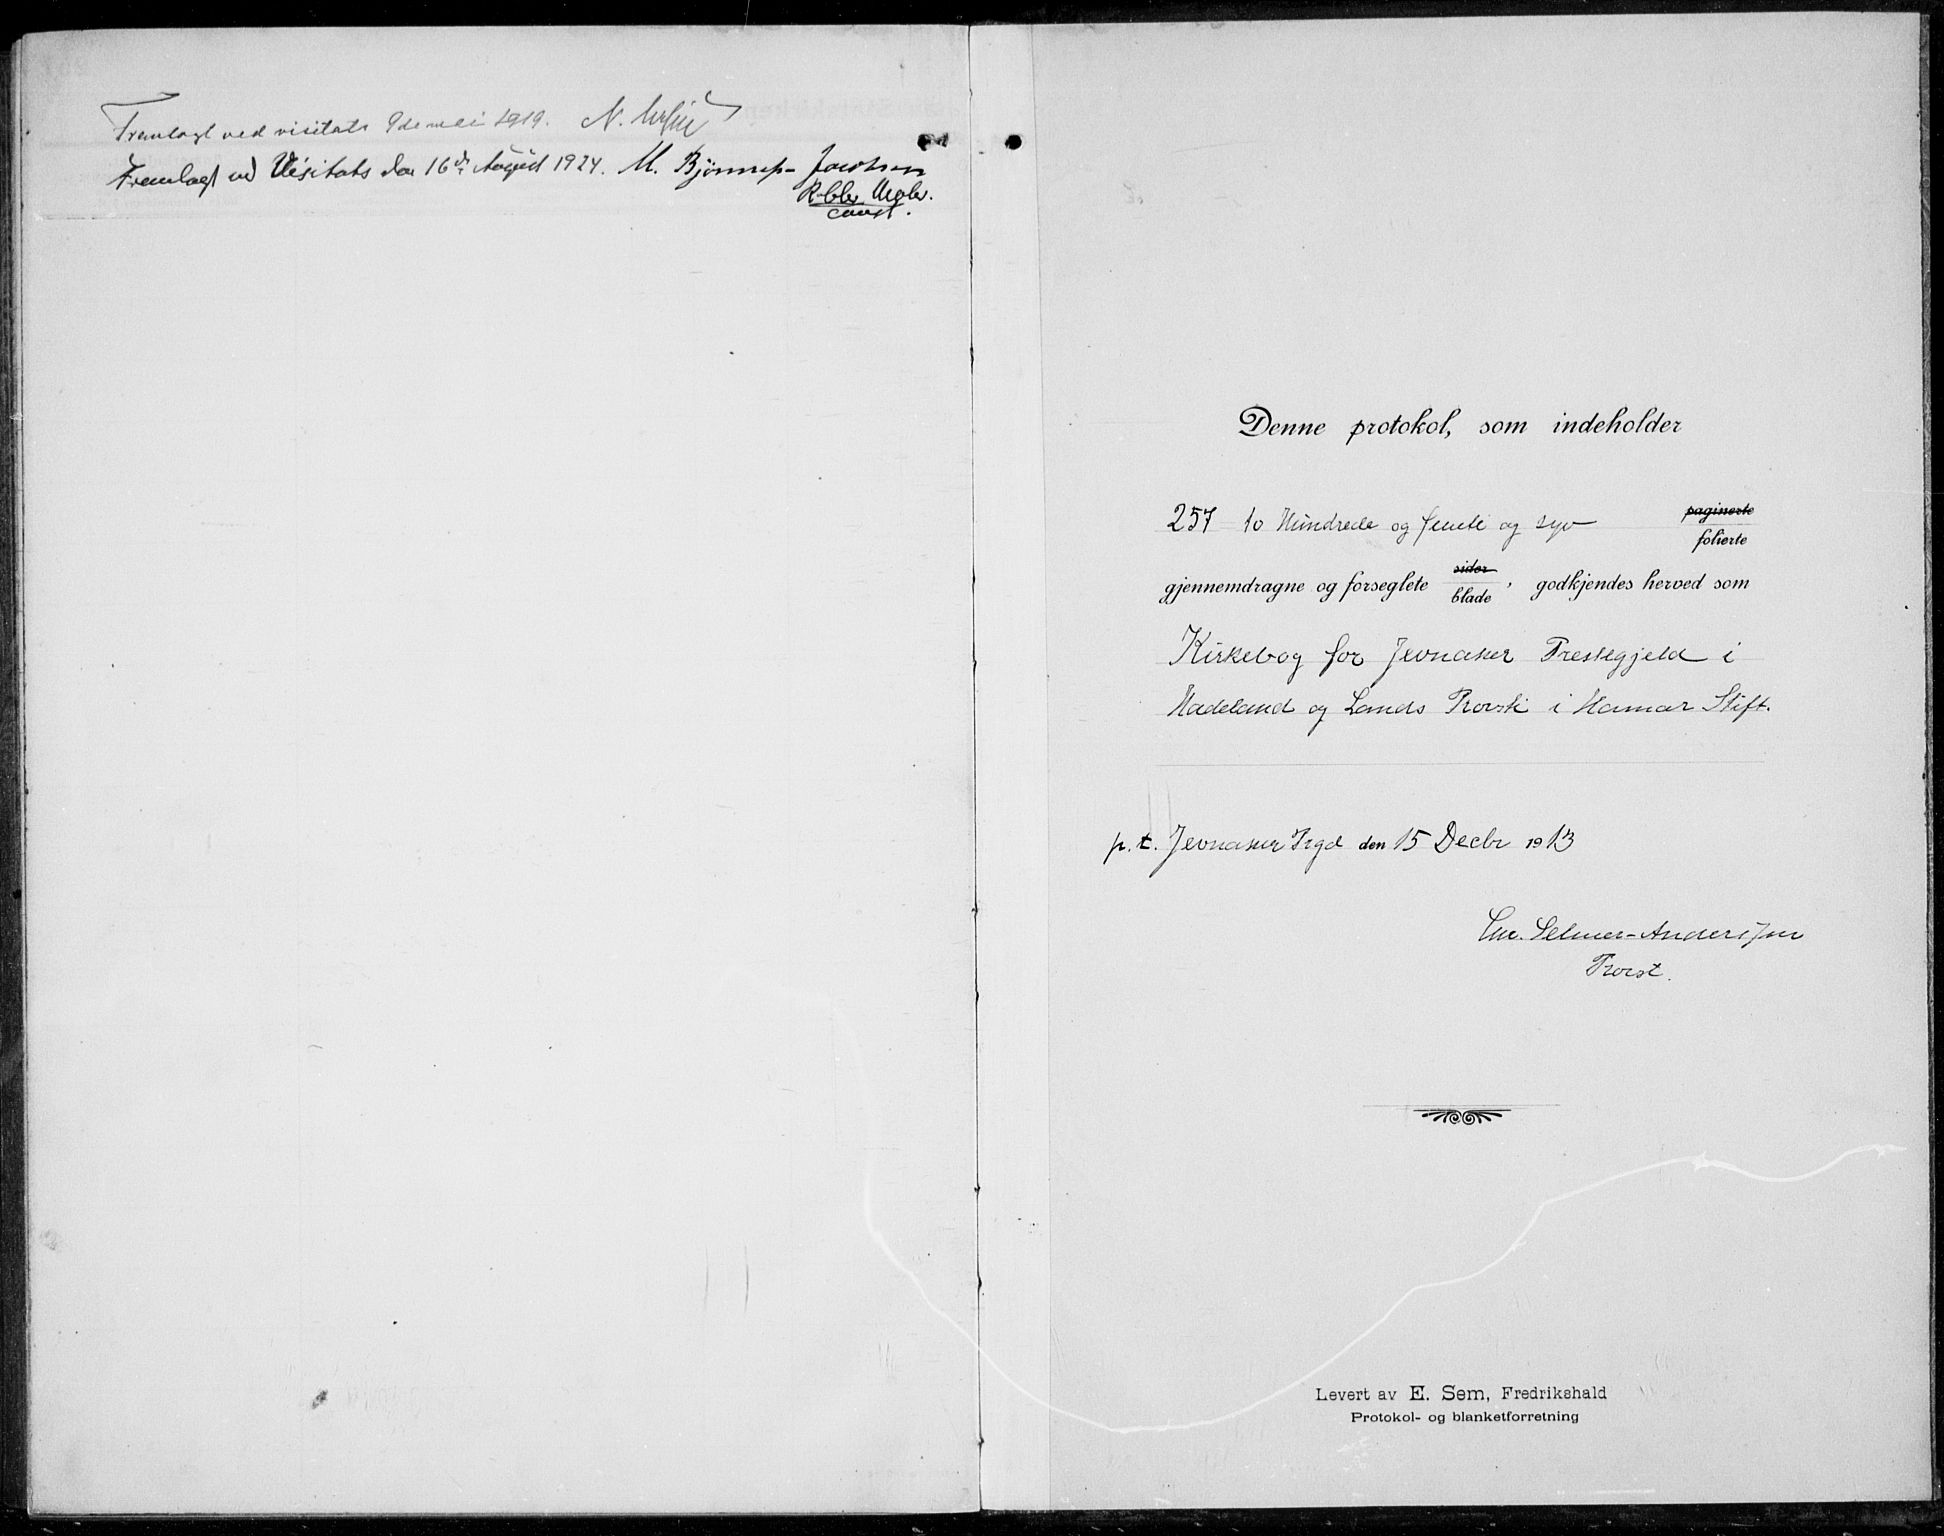 Fremlagt ved visitats 9de mai 1919. N.
Fremlagt ved Visitats den 16de August 1924. M. Bjønnes-Jacobsen
const.
Denne protokol, som indeholder
257 to Hundrede og femti og syv paginerte
folierte
gjennemdragne og forseglete sider
blade, godkjendes herved som
Kirkebog for Jevnaker Prestegjeld i
Hadeland og Lands Provsti i Hamar Stift.
p. t. Jevnaker Prgd den 15 Decbr 1913
Chr. Selmer-Anderssen
Provst.
Levert av E. Sem, Fredrikshald
Protokol- og blanketforretning